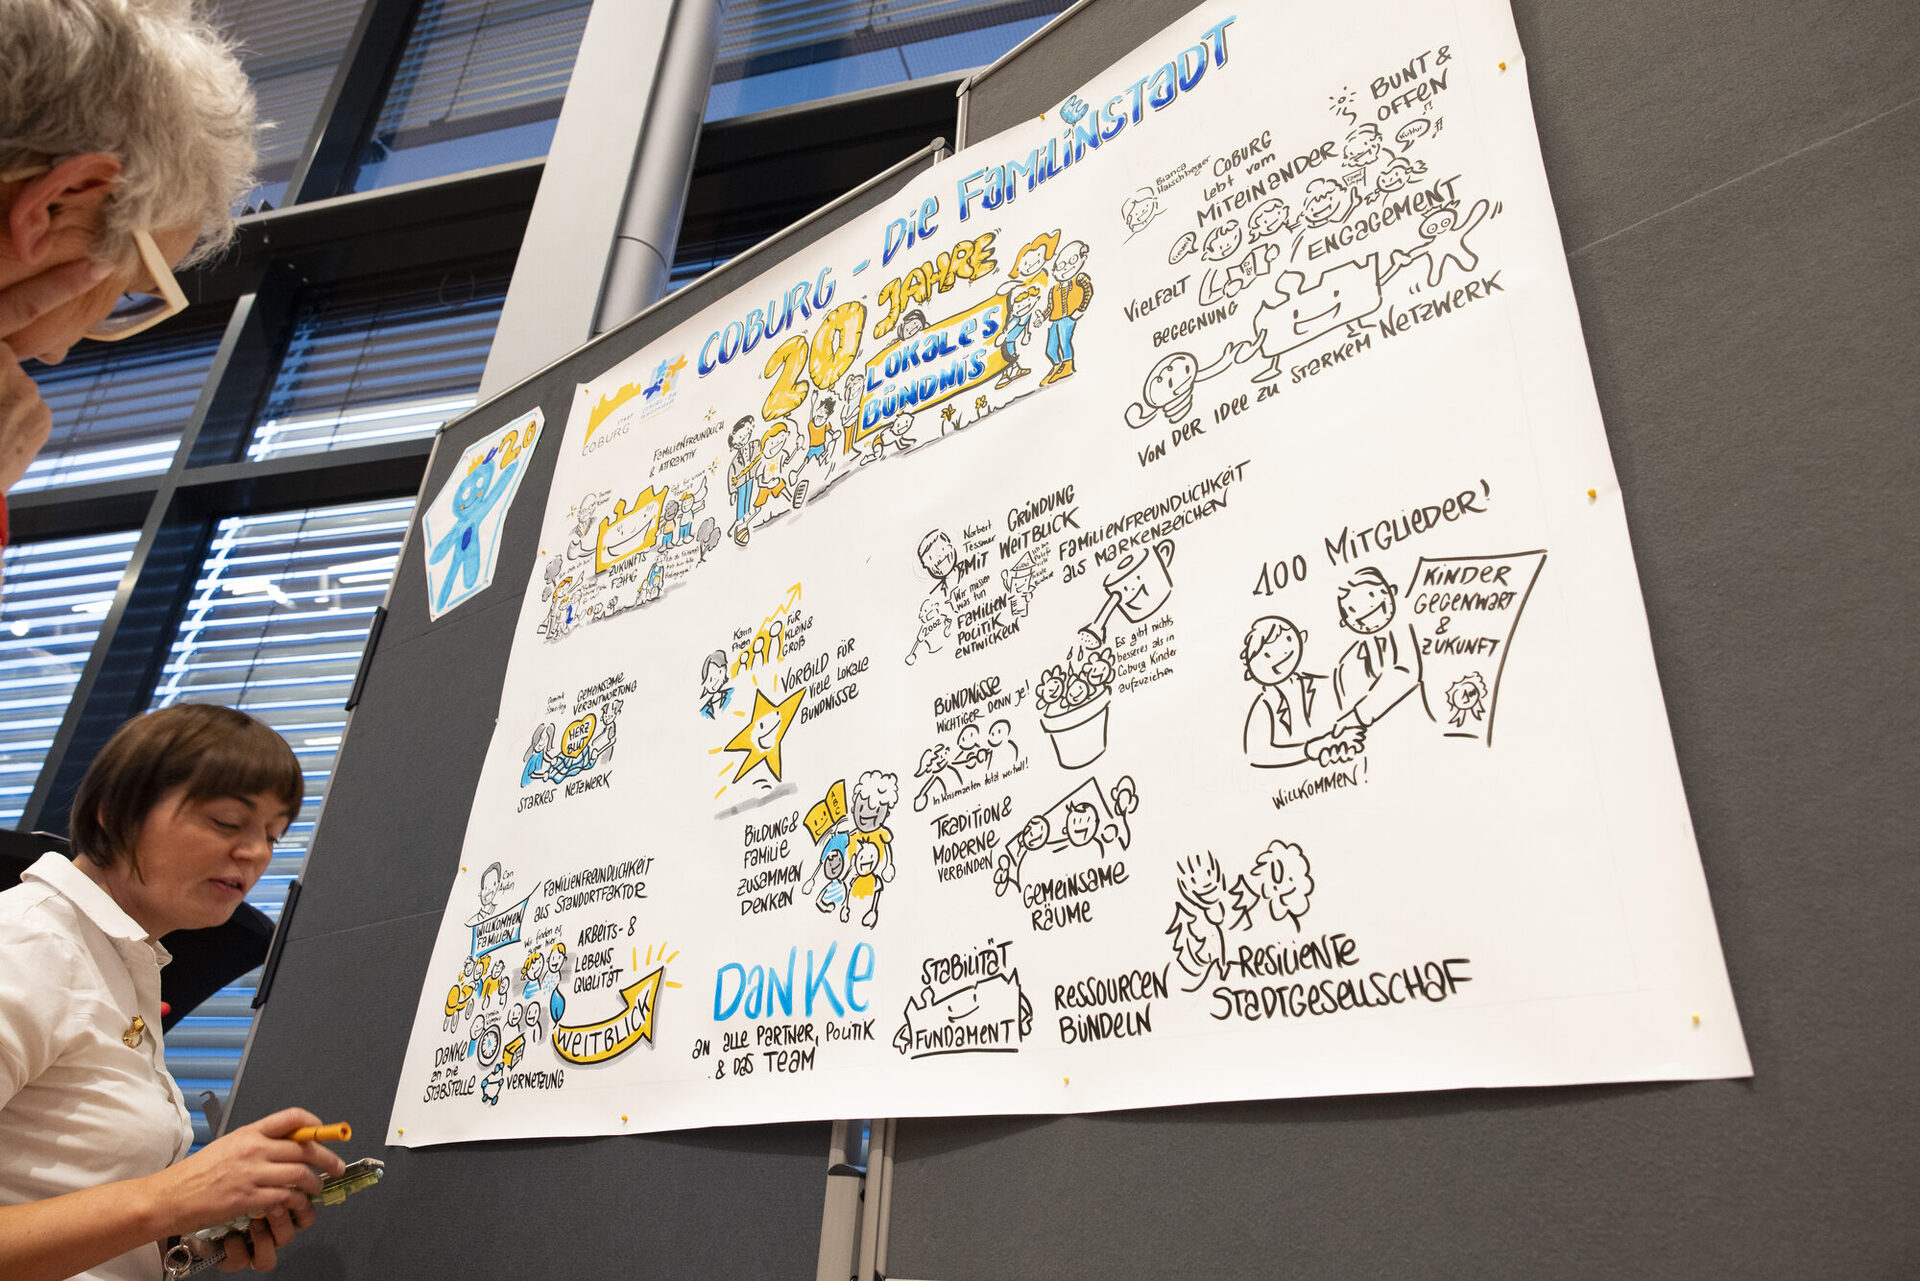 COBURG - DIE FAMILINSTADT
20 JAHRE
LOKALES
BÜNDNIS
STADT
COBURG
20
FAMILIENFREUNDLICH
& ATTRAKTIV
ZUKUNFTS
FÄHIG
GEMEINSAME
VERANTWORTUNG
HERZ
BLUT
STARKES NETZWERK
Can
Aydin
FAMILIENFREUNDLICHKEIT
als STANDORTFAKTOR
WILLKOMMEN
FAMILIEN
Wir finden es
super hier
ARBEITS- &
LEBENS
QUALITÄT
WEITBLICK
DANKE
an die
STABSTELLE
VERNETZUNG
Karin
FÜR
KLEIN &
GROß
VORBILD FÜR
VIELE LOKALE
BÜNDNISSE
BILDUNG &
FAMILIE
ZUSAMMEN
DENKEN
ABC
DANKE
an alle PARTNER, POLITIK
& das TEAM
Norbert
Tessmer
GRÜNDUNG
MIT WEITBLICK
Wir müssen
was tun
2002
FAMILIEN-
POLITIK
ENTWICKELN
FAMILIENFREUNDLICHKEIT
als MARKENZEICHEN
Es gibt nichts
besseres als in
Coburg Kinder
aufzuziehen
BÜNDNISSE
WICHTIGER DENN JE!
In Krisenzeiten total wertvoll!
TRADITION &
MODERNE
VERBINDEN
GEMEINSAME
RÄUME
STABILITÄT
FUNDAMENT
RESSOURCEN
BÜNDELN
RESILIENTE
STADTGESELLSCHAF
Bianca
Haischberger
COBURG
lebt vom
MITEINANDER
BUNT &
OFFEN
Kultur
ENGAGEMENT
VIELFALT
BEGEGNUNG
VON DER IDEE ZU STARKEM NETZWERK
100 MITGLIEDER!
KINDER
GEGENWART
&
ZUKUNFT
WILLKOMMEN!